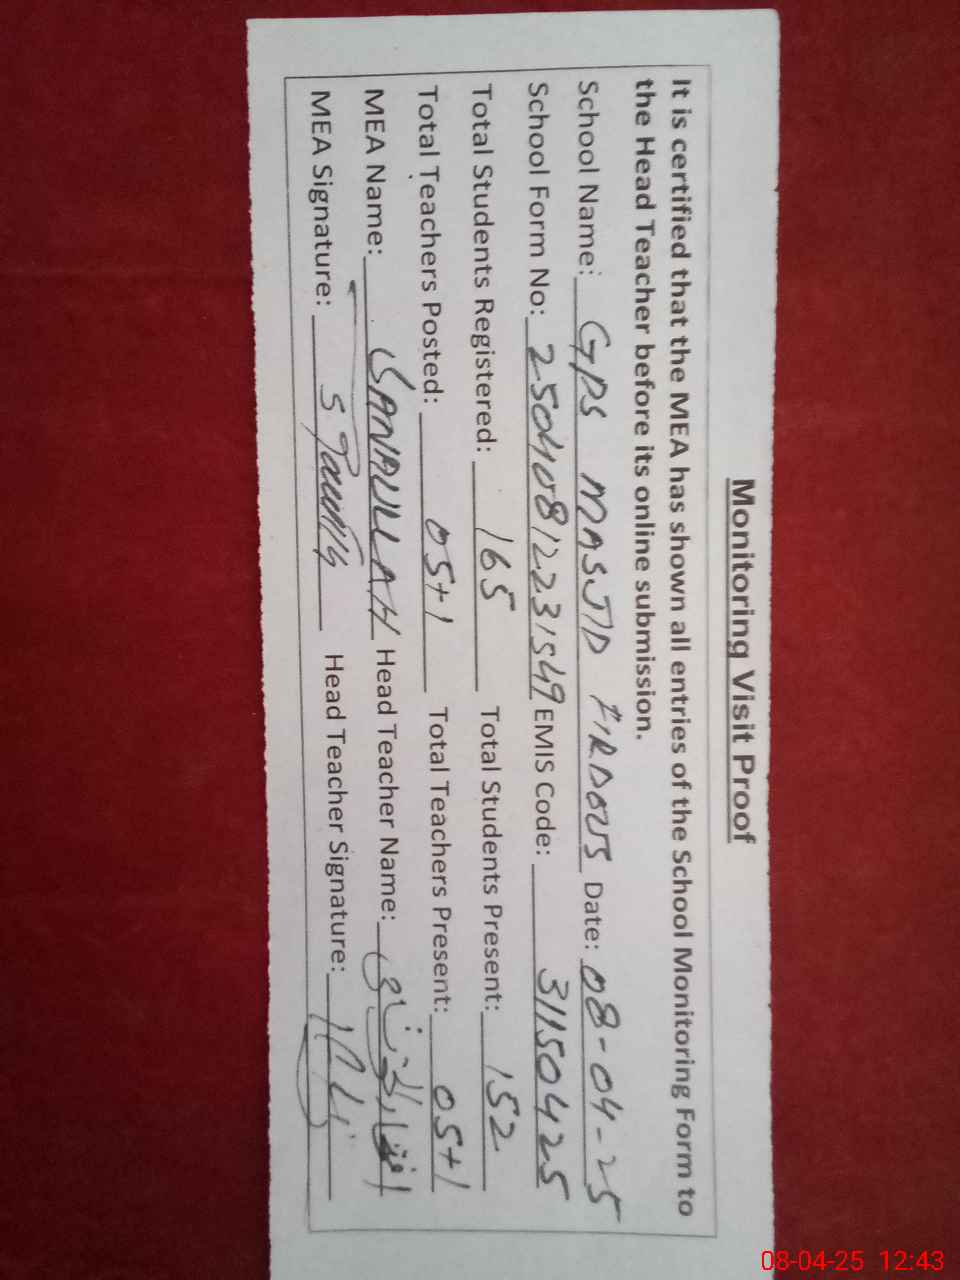 Monitoring Visit Proof
It is certified that the MEA has shown all entries of the School Monitoring Form to
the Head Teacher before its online submission.
School Name: GPS MASJID FIRDOUS Date: 08-04-25
School Form No: 25040812231549 EMIS Code: 31150425
Total Students Registered: 165 Total Students Present: 152
Total Teachers Posted: 05+1 Total Teachers Present: 05+1
MEA Name: SANAULLAH Head Teacher Name:
MEA Signature: Head Teacher Signature:
08-04-25 12:43